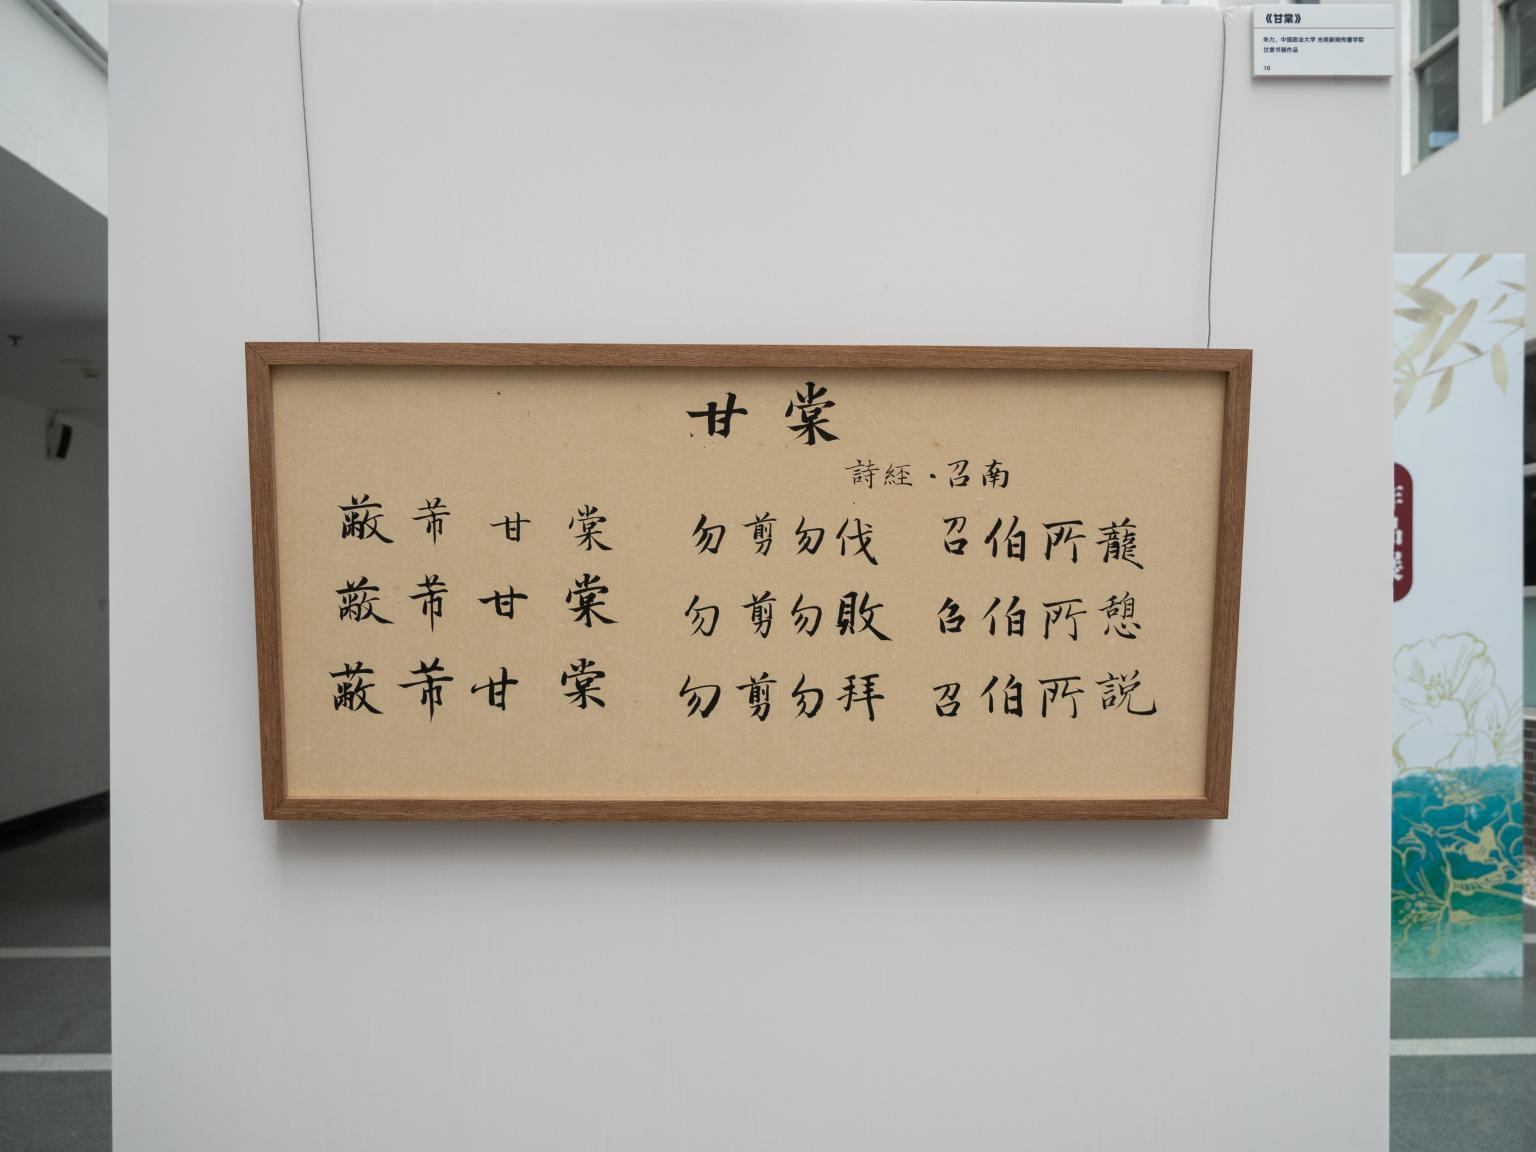 甘棠
詩經·召南
蔽芾甘棠 勿剪勿伐 召伯所蘢
蔽芾甘棠 勿剪勿敗 召伯所憩
蔽芾甘棠 勿剪勿拜 召伯所説
《甘棠》
朱力，中国政法大学 光明新闻传播学院
甘棠书画作品
10